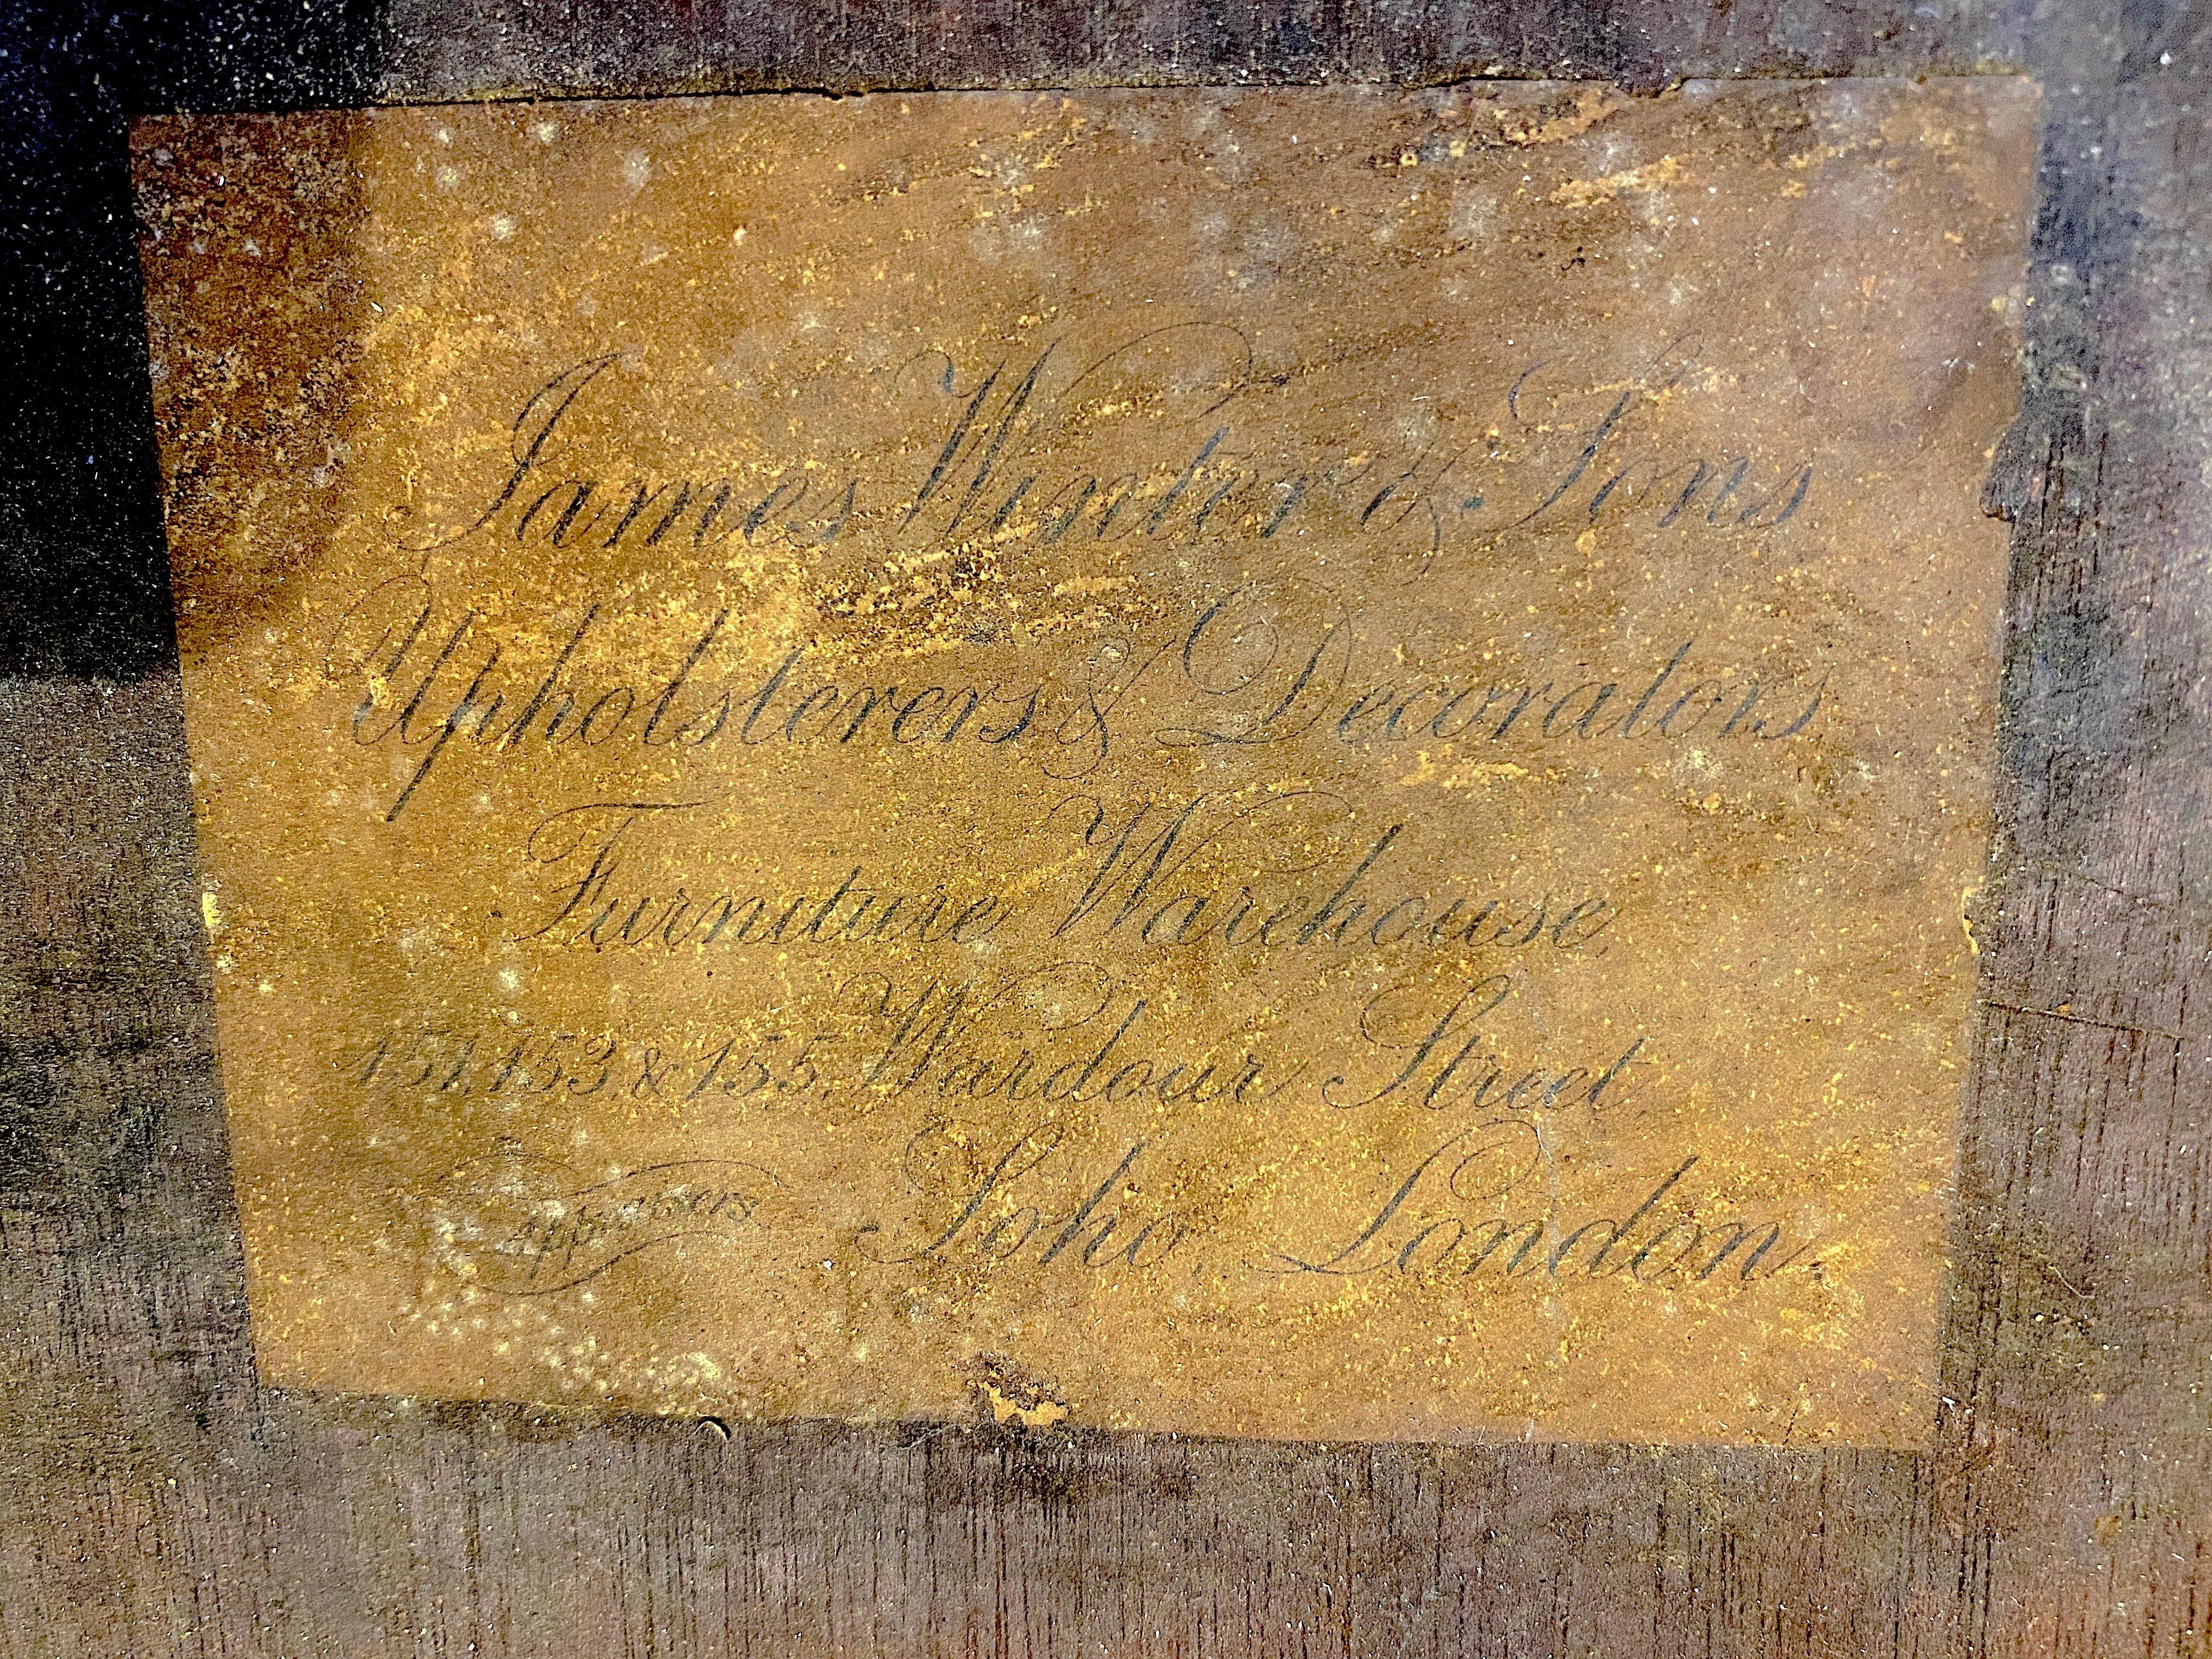 James Winter & Sons
Upholsterers & Decorators
Furniture Warehouse,
151, 153, & 155, Wardour Street,
Appraisers. Soho, London.